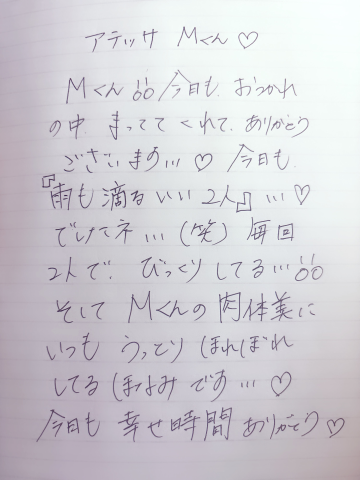 アテッサ Mくん♡
Mくん!! 今日も、おつかれ
の中、まってて くれて、ありがとう
ございます… ♡ 今日も
『雨も滴るいい2人』… ♡
でしたネ…(笑) 毎回
2人で、びっくりしてる…!!
そして Mくんの肉体美に
いつも うっとり ほれぼれ
してる ほなみ です… ♡
今日も 幸せ時間 ありがとう♡